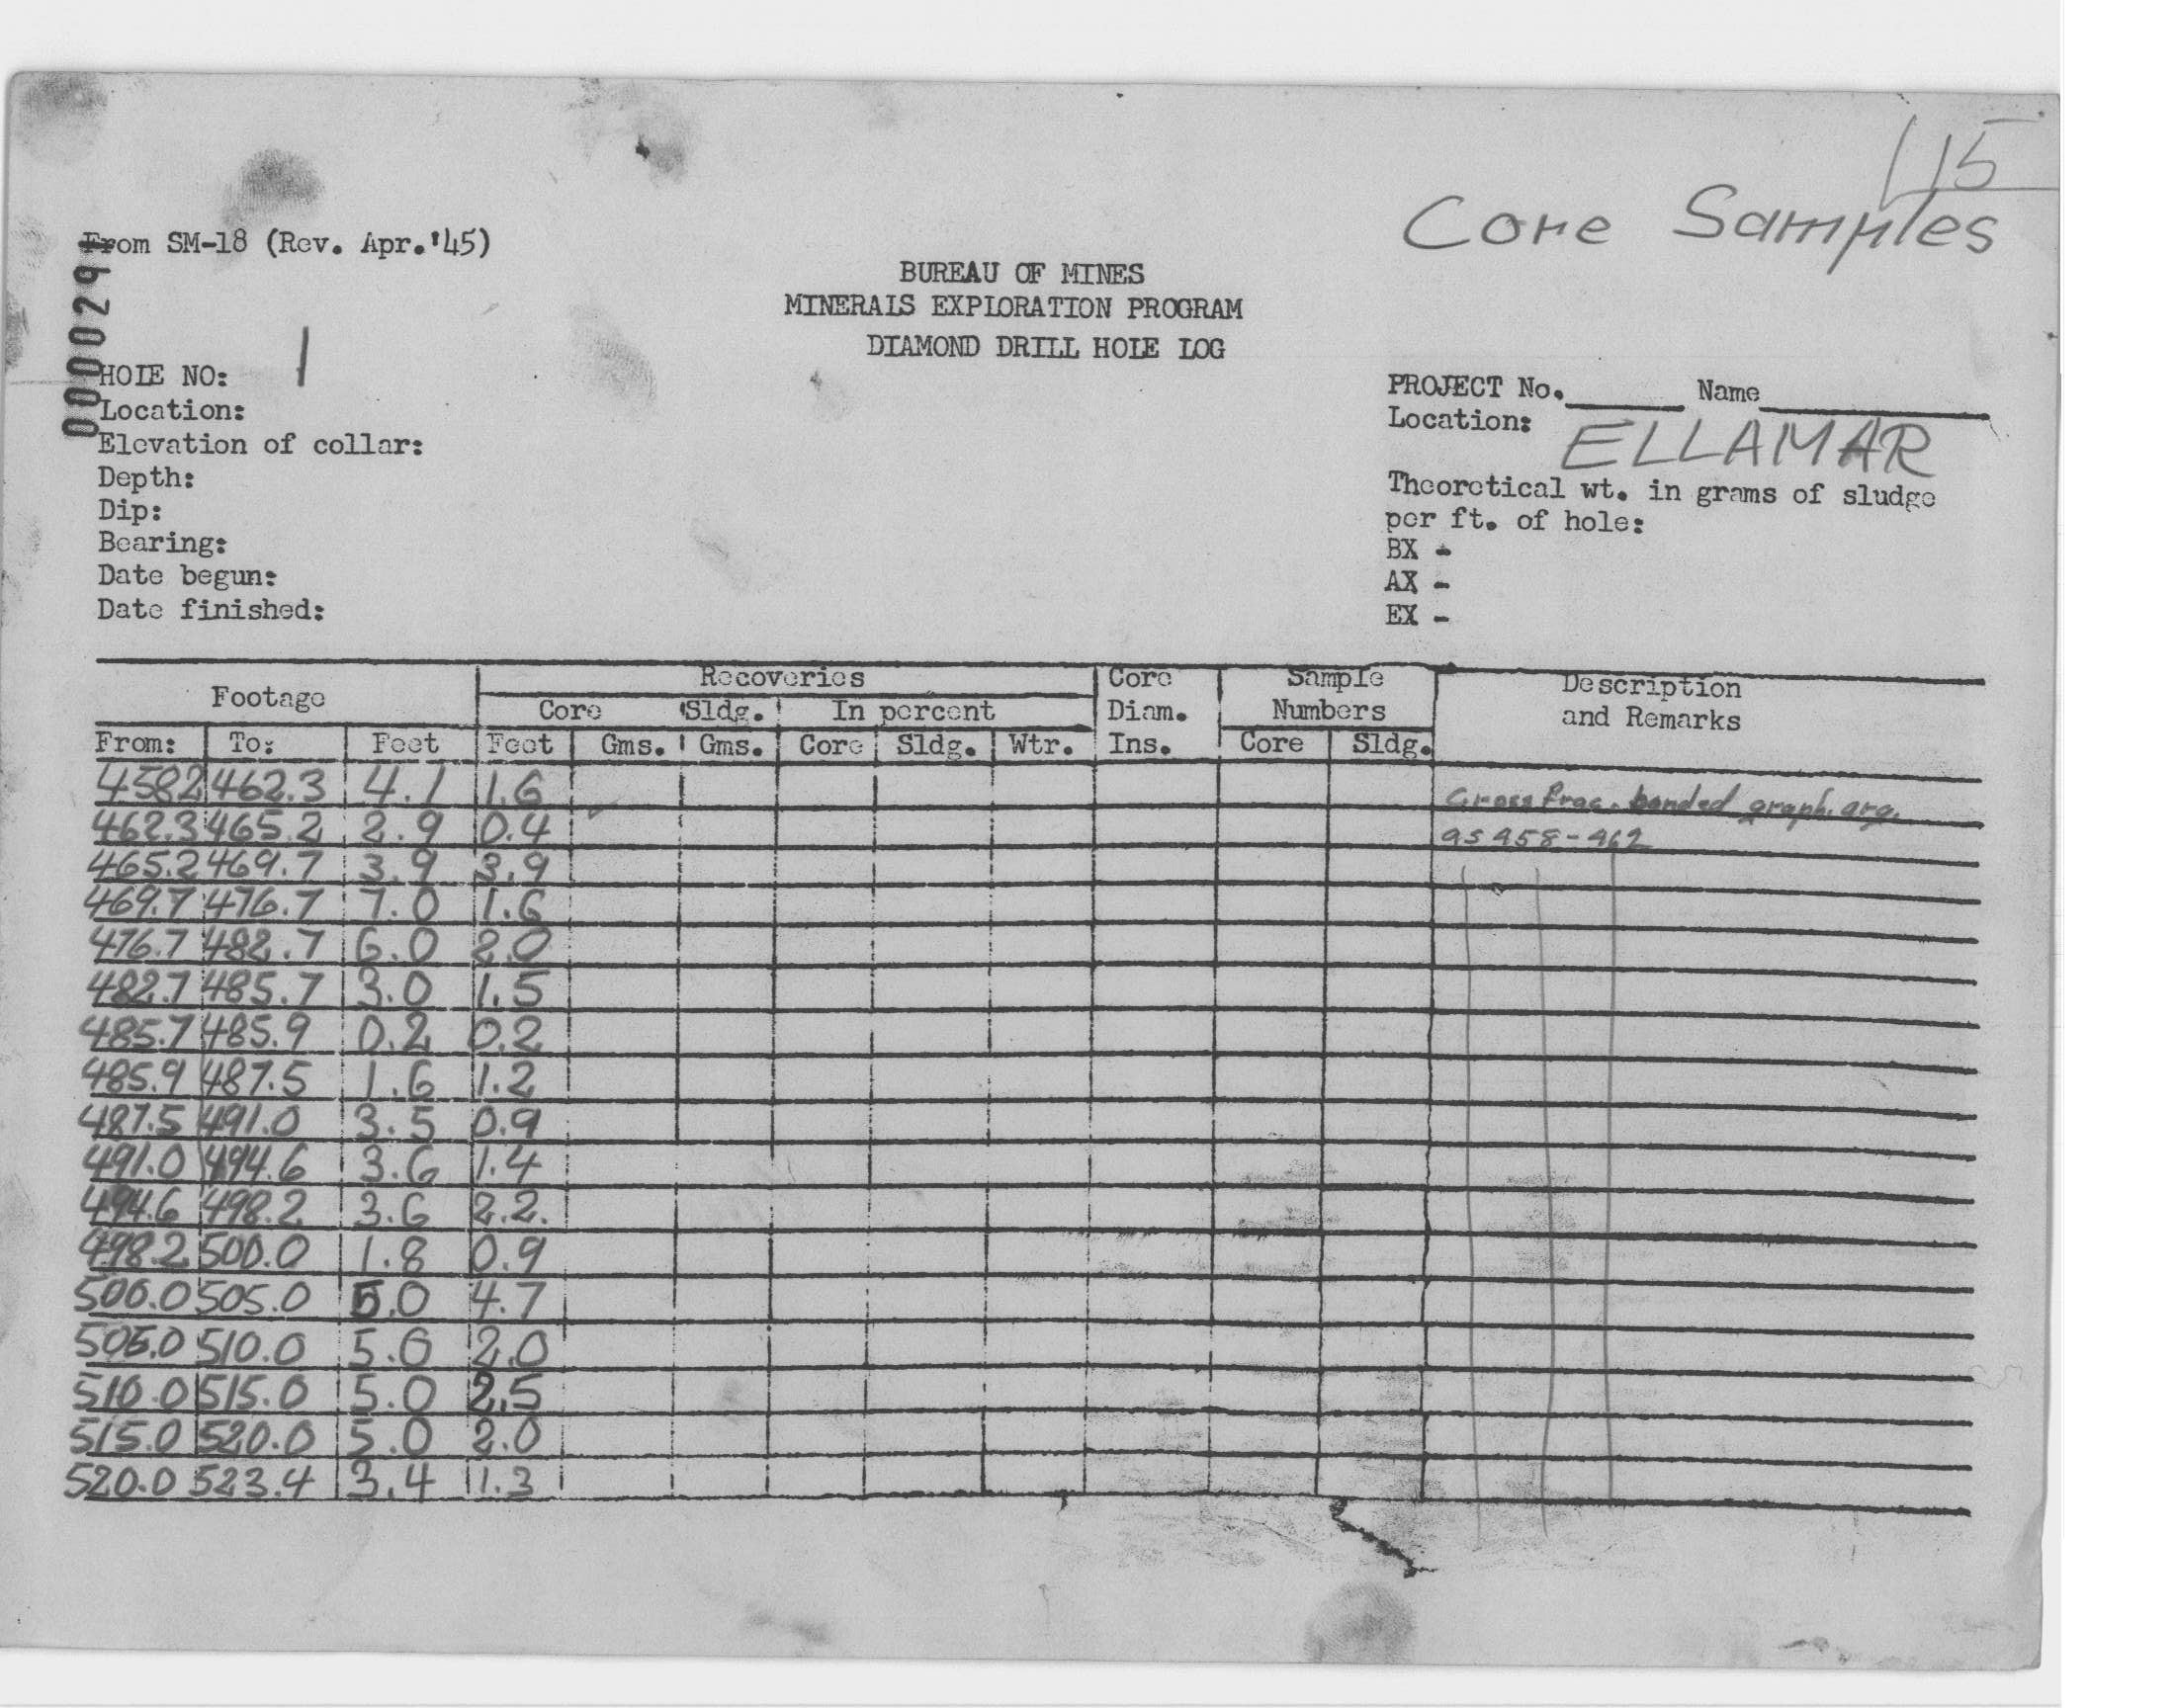 115
Core Samples
From SM-18 (Rev. Apr.'45)
BUREAU OF MINES
MINERALS EXPLORATION PROGRAM
DIAMOND DRILL HOLE LOG
000029
HOLE NO: 1
Location:
Elevation of collar:
Depth:
Dip:
Bearing:
Date begun:
Date finished:
PROJECT No. Name
Location: ELLAMAR
Theoretical wt. in grams of sludge
per ft. of hole:
BX -
AX -
EX -
Footage Recoveries Core Sample Description
Core Sldg. In percent Diam. Numbers and Remarks
From: To: Feet Feet Gms. Gms. Core Sldg. Wtr. Ins. Core Sldg.
458.2 462.3 4.1 1.6 Cross frac. banded graph. arg.
462.3 465.2 2.9 0.4 as 458-462
465.2 469.7 3.9 3.9
469.7 476.7 7.0 1.6
476.7 482.7 6.0 2.0
482.7 485.7 3.0 1.5
485.7 485.9 0.2 0.2
485.9 487.5 1.6 1.2
487.5 491.0 3.5 0.9
491.0 494.6 3.6 1.4
494.6 498.2 3.6 2.2
498.2 500.0 1.8 0.9
500.0 505.0 5.0 4.7
505.0 510.0 5.0 2.0
510.0 515.0 5.0 2.5
515.0 520.0 5.0 2.0
520.0 523.4 3.4 1.3